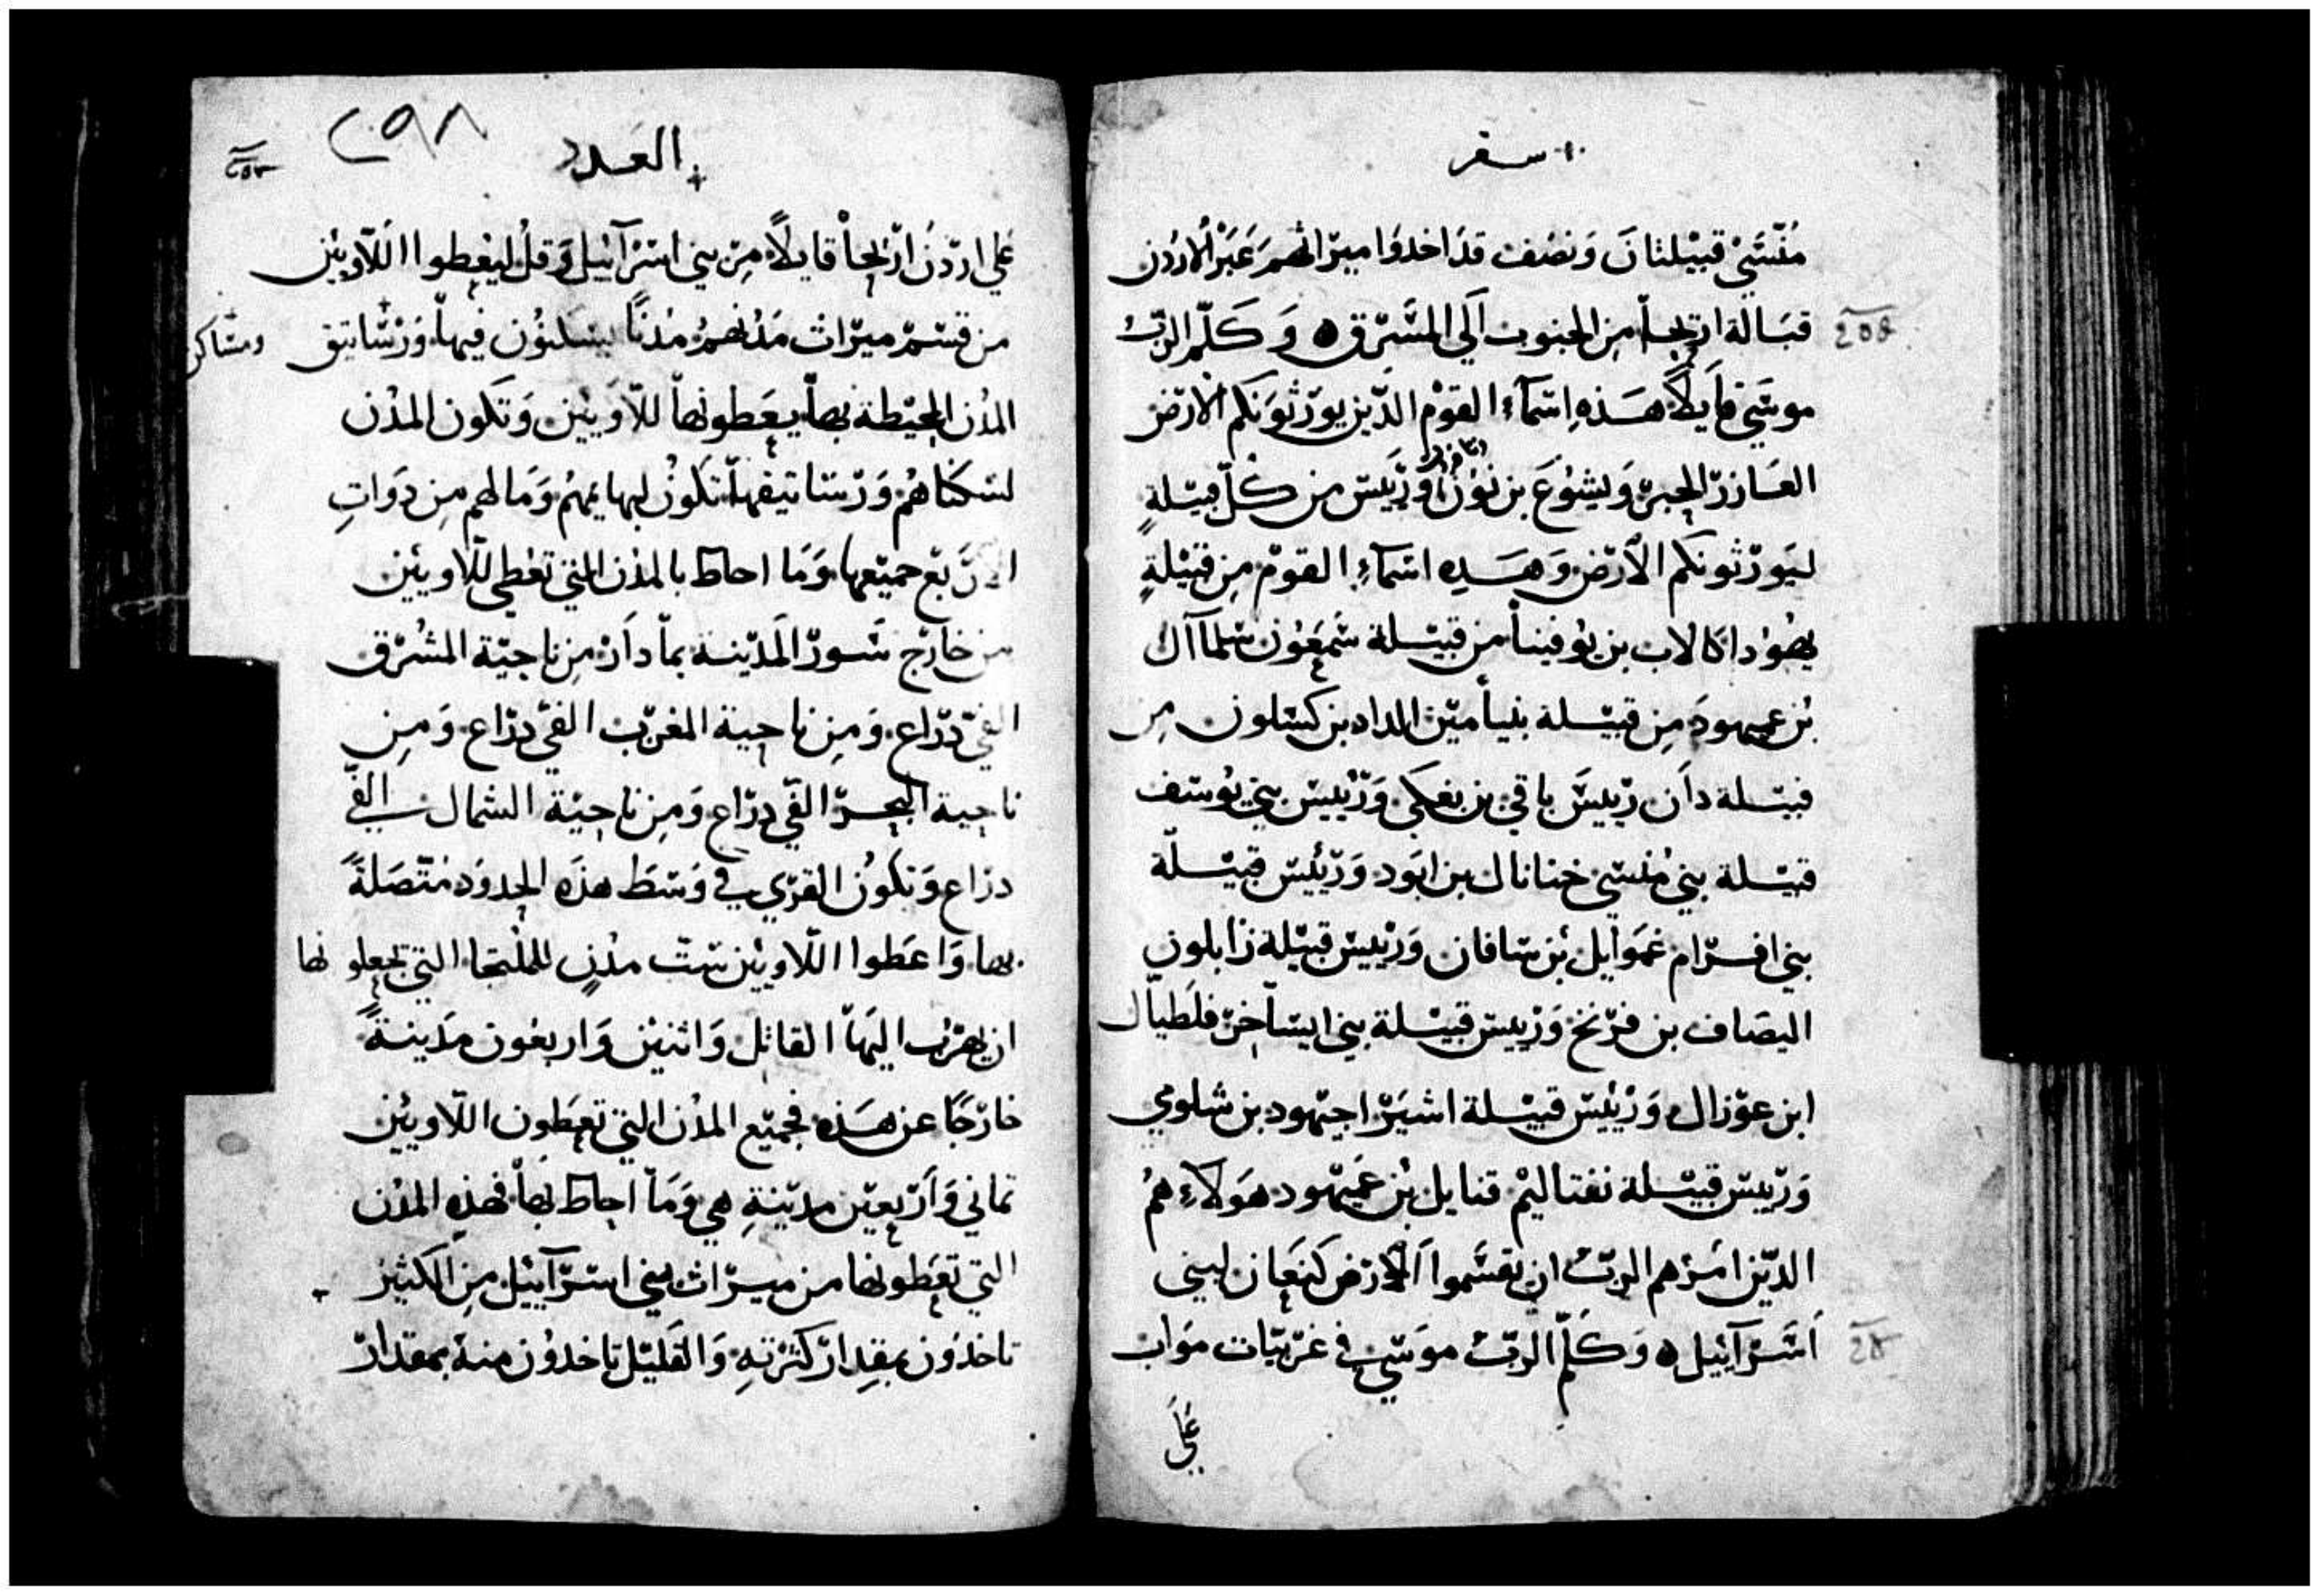 سفر
منسّي قبيلتان ونصف قد اخدوا ميراثهم عبر الاردن
قبالة اريحا من الجنوب الي المشرق ه وكلّم الربّ
موسي قايلاً هذه اسماء القوم الدين يورثونكم الارض
العازر الحبر ويشوع بن نون وريس من كلّ قبيلة
ليورثونكم الارض وهده اسماء القوم من قبيلة
يهودا كالاب بن يوفينا من قبيلة شمعون سلماآل
بن عميهود من قبيلة بنيامين الداد بن كسلون من
قبيلة دان رييس باقي بن يغكي ورييس بني يوسف
قبيلة بني منسي خنانال بن ابود ورييس قبيلة
بني افرام غموايل بن سافان ورييس قبيلة زابلون
اليصاف بن فرنخ ورييس قبيلة بني ايساخر فلطيال
ابن عوزال ورييس قبيلة اشير اجيهود بن شلومي
ورييس قبيلة نفتاليم قنايل بن عميهود هولاء هم
الدين امرهم الرب ان يقسموا الارض كنعان لبني
اسرآييل ه وكلّم الربّ موسي في غربيات مواب
علي
العدد
٢٥٨
علي اردن اريحا قايلاً من بني اسرآييل وقل ليعطوا اللاويين
من قسم ميراث مدنهم مدناً يسكنون فيها ورساتيق ومساكن
المدن المحيطة بها يعطونها للاويين وتكون المدن
لسكناهم ورساتيقها تكون لبهايمهم وما لهم من دوات
الاربع جميعها وما احاط بالمدن التي تعطي للاويين
من خارج سور المدينة بما دار من ناحية المشرق
الفي دراع ومن ناحية المغرب الفي دراع ومن
ناحية البحر الفي دراع ومن ناحية الشمال الفي
دراع وتكون القري في وسط هذه الحدود متصلة
بها واعطوا اللاويين ستّ مدن للملتجا التي تجعلونها
ان يهرب اليها القاتل واثنين واربعون مدينة
خارجاً عن هذه فجميع المدن التي تعطون اللاويين
تماني واربعين مدينة هي وما احاط بها فهذه المدن
التي تعطونها من ميراث بني اسرآييل من الكثير
تاخدون بمقدار كثرته والقليل تاخدون منه بمقدار